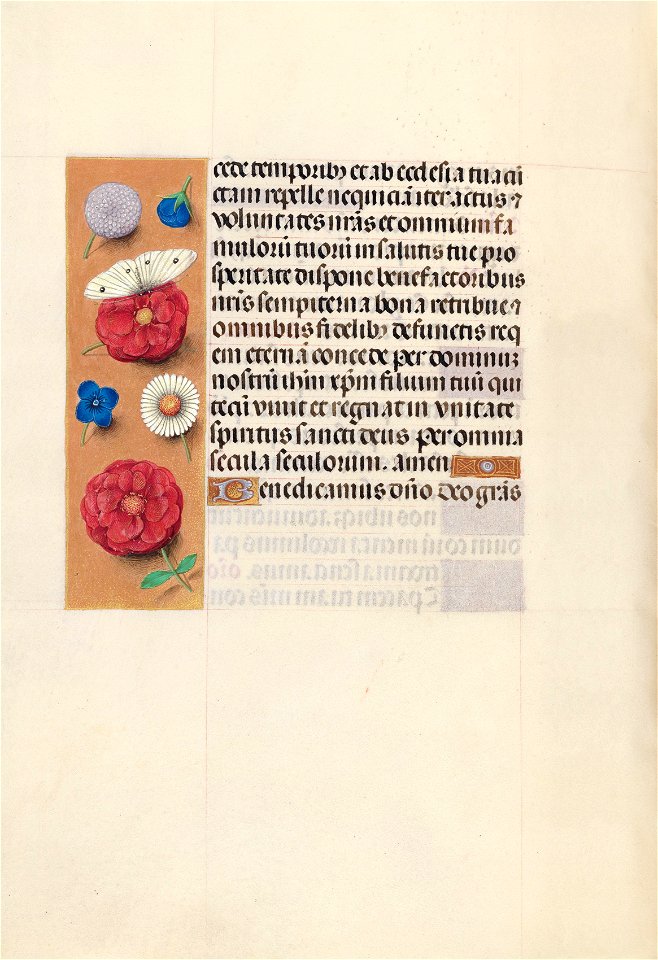 cede temporibꝫ et ab ecclesia tua cū
ctam repelle nequiciā iter actus ⁊
voluntates nr̄as et omnium fa
mulorū tuorū in salutis tue pro
speritate dispone benefactoribus
nr̄is sempiterna bona retribue ⁊
omnibus fidelibꝫ defunctis req
em eternā concede per dominuꝫ
nostrū ihm̄ xp̄m filium tuū qui
tecū vivit et regnat in vnitate
spiritus sancti deus per omnia
secula seculorum. amen
Benedicamus dn̄o. Deo grās